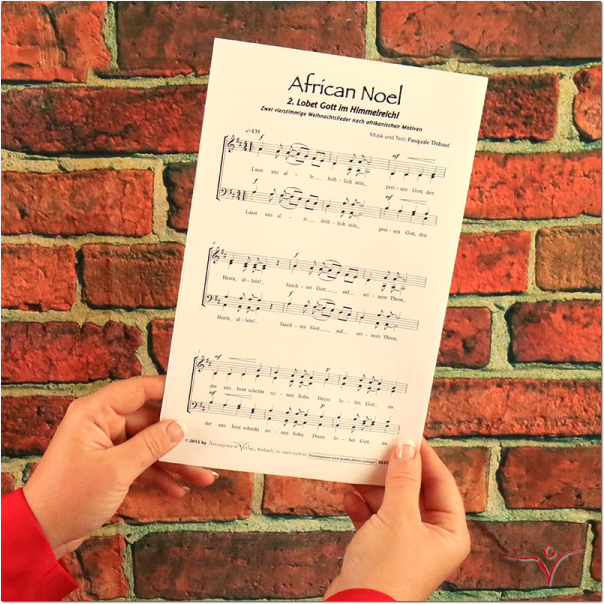 African Noel
2. Lobet Gott im Himmelreich!
Zwei vierstimmige Weihnachtslieder nach afrikanischen Motiven
Musik und Text: Pasquale Thibaut
♩=135
mf
f
Lasst uns al - le fröh - lich sein, prei - sen Gott, den
f
mf
Lasst uns al - le fröh - lich sein, prei - sen Gott, den
f
Herrn, al - lein!, Jauch - zet Gott auf sei - nem Thron,
f
Herrn, al - lein!, Jauch - zet Gott auf sei - nem Thron,
mf
p
der uns heut schenkt sei - nen Sohn. Drum lo - bet Gott im
mf
p
der uns heut schenkt sei - nen Sohn. Drum lo - bet Gott im
© 2015 by Arrangement Verlag